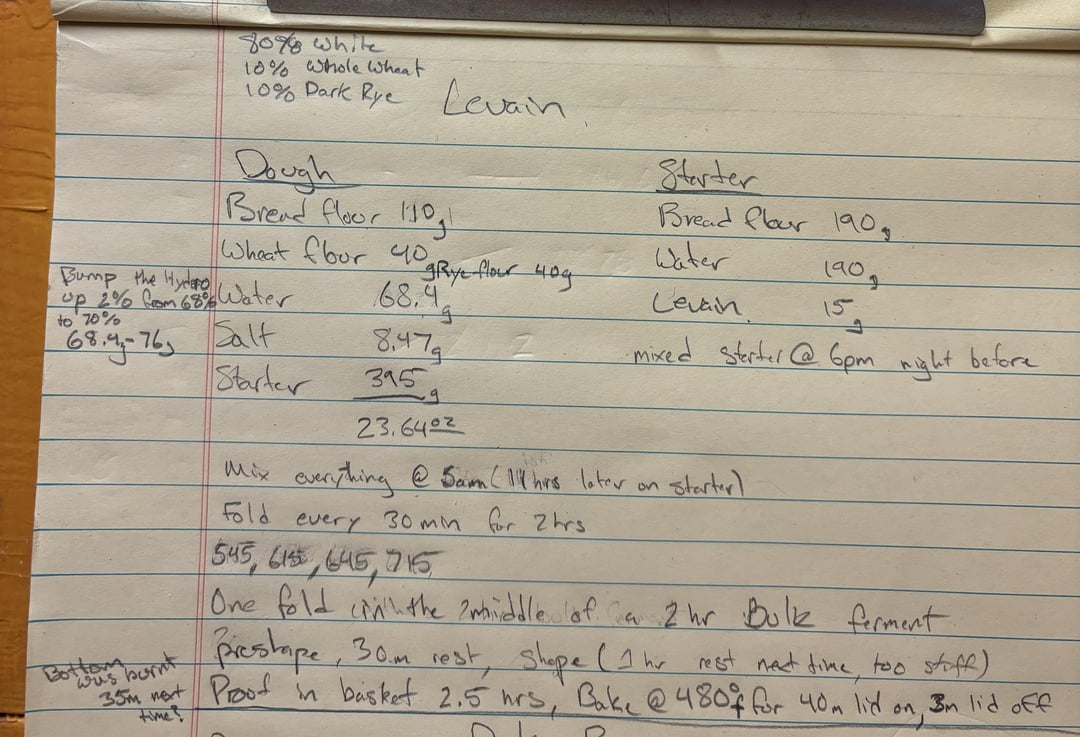 80% White
10% Whole Wheat
10% Dark Rye
Levain
Dough
Bread flour 110g
Wheat flour 40g Rye flour 40g
Water 68.4g
Salt 8.47g
Starter 395g
23.64oz
Starter
Bread flour 190g
Water 190g
Levain 15g
mixed starter @ 6pm night before
Bump the Hydro
up 2% from 68%
to 70%
68.4g-76g
Mix everything @ 5am (11hrs later on starter)
Fold every 30 min for 2hrs
545, 615, 645, 715
One fold in the middle of a 2 hr Bulk ferment
Preshape, 30m rest, shape (1 hr rest next time, too stiff)
Bottom was burnt
35m next
time?
Proof in basket 2.5 hrs, Bake @ 480°f for 40m lid on, 3m lid off